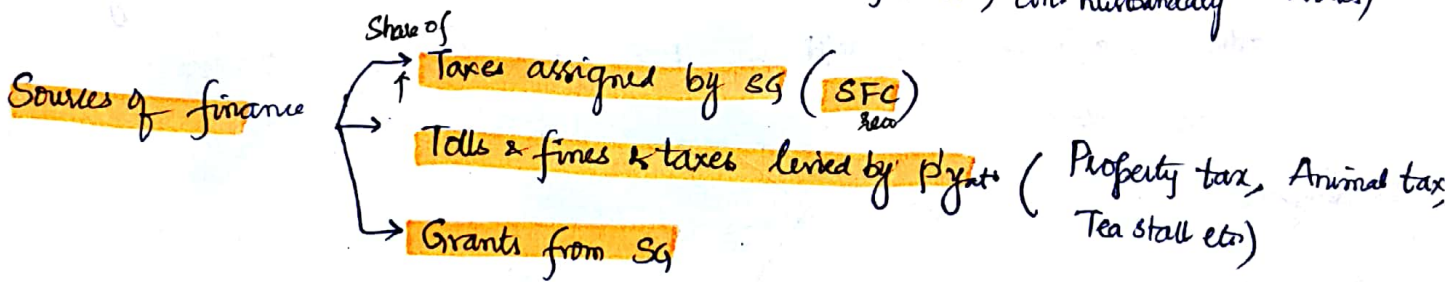 husbandary
Share of
Sources of finance
Taxes assigned by SG (SFC)
reco
Tolls & fines & taxes levied by p'yats (Property tax, Animal tax,
Tea stall etc)
Grants from SG